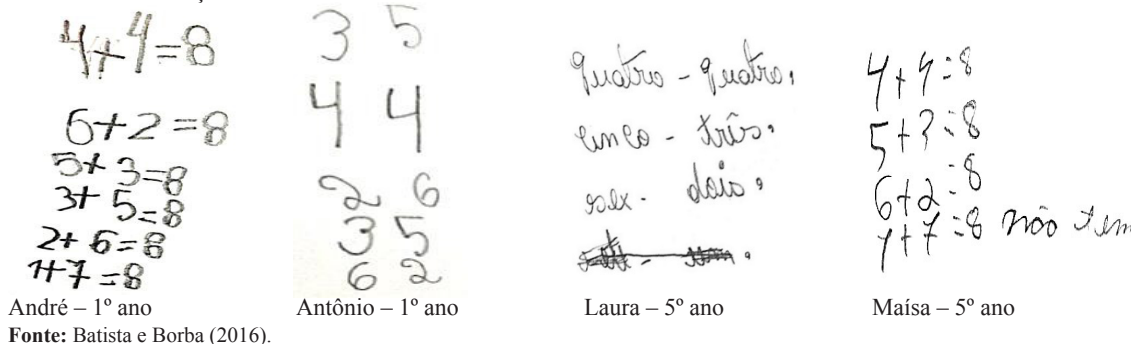 4+4=8
6+2=8
5+3=8
3+5=8
2+6=8
1+7=8
André – 1º ano
3 5
4 4
2 6
3 5
6 2
Antônio – 1º ano
quatro - quatro.
cinco - três.
seix - dois.
Laura – 5º ano
4+4=8
5+3=8
6+2=8
1+7=8 não tem
Maísa – 5º ano
Fonte: Batista e Borba (2016).